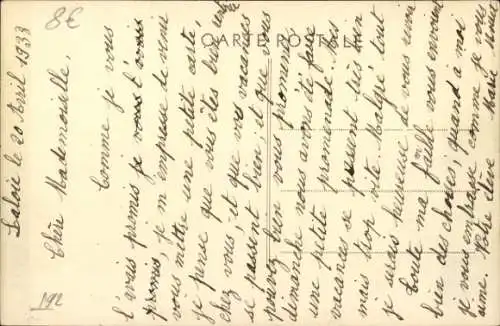 8€
CARTE POSTALE
192
le 20 Avril 1933
Chère Mademoiselle,
Comme je vous
l'avais promis je vous
promis, je m'empresse de venir
vous mettre une petite carte,
je pense que vous êtes bien
chez vous, et que vos vacances
se passent bien, et que vous
pouvez bien vous promener
dimanche nous avons été faire
une petite promenade. Mes
vacances se passent très bien
mais trop vite. Malgré tout
je serais heureuse de vous
Toute ma famille vous envoient
bien des choses, quand à moi
je vous embrasse comme je vous
aime. Votre élève